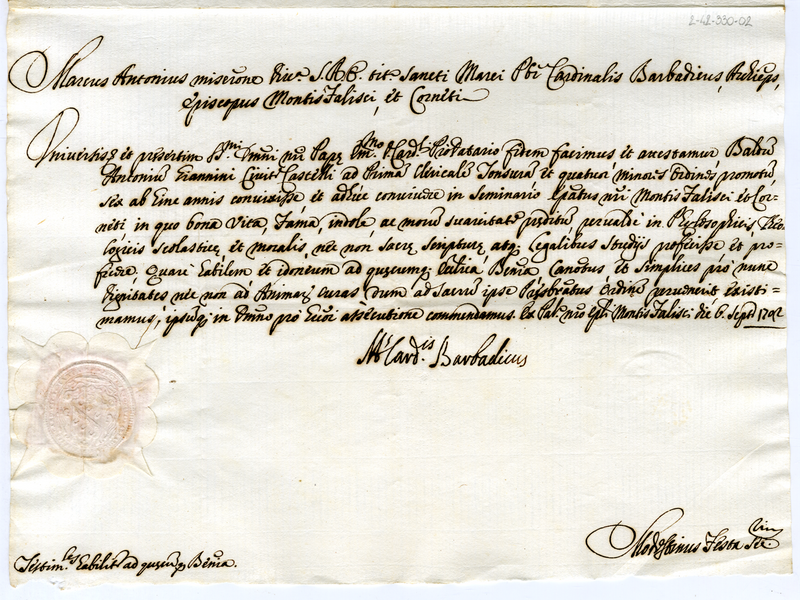 2-42-330-02
Marcus Antonius miserone Div. S.R.E. tit. Sancti Marci Pbr Cardinalis Barbadicus, Archieps,
Episcopus Montis Falisci, et Corneti
Universis, et presertim Dni nri Pape Card. Prodatario fidem facimus, et attestamur Baldm
Antonium Giannini Civit. Castelli ad Prima Clericale Tonsura et quatuor minores Ordines promotu
sex ab hinc annis convixisse et adhuc convivere in Seminario Epatus nri Montis Falisci et Cor-
neti in quo bona Vita, Fama, indole ac moru suavitate preditu pervaldi in Phylosophicis, Theo-
logicis scolastice, et moralis, nec non Sacre Scripture, atq Legalibus Studijs profecisse et pro-
ficere. Quare habilem et idoneum ad quecumq Benia Canotus et Simplices pro nunc
dignitates nec non ad Animar curas, dum ad Sacru ipse Prysbratus Ordine pervenerit existi-
mamus, ipsuq in Dmno pro assecutione commendamus. Ex Pal. nro Epli Montis Falisci die 6. Sept. 1702
M. Card.is Barbadicus
Modestinus Testa Sec.
Testim.les habilit. ad quecuq Benia.